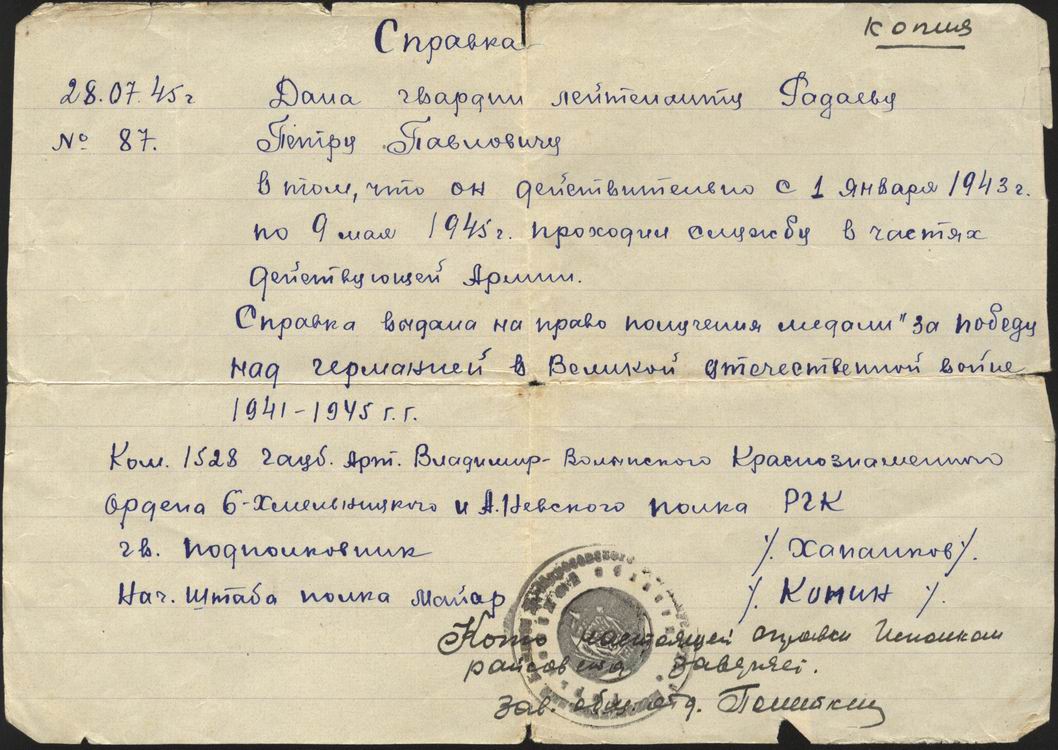 Справка
копия
28.07.45г Дана гвардии лейтенанту Радаеву
№ 87. Петру Павловичу
в том, что он действительно с 1 января 1943 г.
по 9 мая 1945 г. проходил службу в частях
действующей Армии.
Справка выдана на право получения медали "за победу
над германией в Великой отечественной войне
1941-1945 г.г.
Ком. 1528 гауб. Арт. Владимир-Волынского Краснознаменного
Ордена Б-Хмельницкого и А.Невского полка РГК
гв. подполковник /. Хапалков/.
Нач. Штаба полка Майар /. Конин /.
Копию настоящей справки Исполком
райсовета заверяет.
зав. общ. отд.